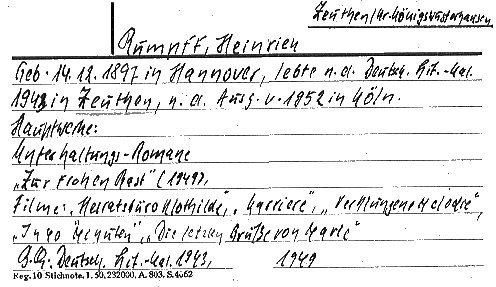 Zeuthen/Kr. Königswusterhausen
Rumpff, Heinrich
Geb. 14.12.1897 in Hannover, lebte n. d. Deutsch. Lit.-Kal.
1943 in Zeuthen, n. d. Ausg. v. 1952 in Köln.
Hauptwerke:
Unterhaltungs-Romane
„Zur frohen Rast" (1949),
Filme: „Heiratsbüro Klothilde", „Karriere", „Verklungene Melodie",
„In 40 Minuten", „Die letzten Grüße von Marie"
Deutsch. Lit.-Kal. 1943, 1949
Reg. 10 Stichnote. 1. 50, 232000, A. 803. S. 4/62